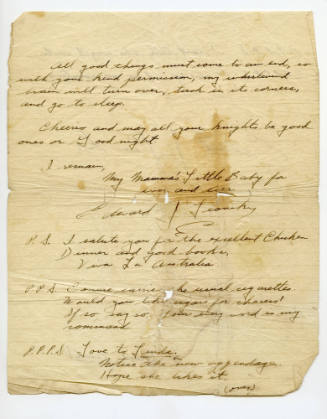 All good things must come to an end, so
with your kind permission, my underlined
brain will turn over, tuck in its corners,
and go to sleep.
Cheerio and may all your knights be good
ones or Good night
I remain,
My Mamma's Little Baby for
ever and ever
Edward J
P.S. I salute you for the excellent Chicken
Dinner and good books,
Viva La Australia
P.P.S. the usual cigarettes.
Would you like cigars for chasers?
If so say so. Your word is my
command
P.P.P.S. Love to Linda.
Notice the new appendage.
Hope she likes it.
(over)